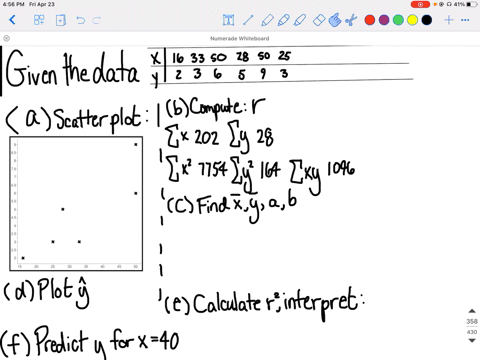 4:56 PM Fri Apr 23
41%
Numerade Whiteboard
Given the data
x 16 33 50 28 50 25
y 2 3 6 5 9 3
(a) Scatterplot:
(b) Compute: r
∑x 202 ∑y 28
∑x² 7754 ∑y² 164 ∑xy 1096
(c) Find x̄, ȳ, a, b
(d) Plot ŷ
(e) Calculate r², interpret:
(f) Predict y for x=40
358
430